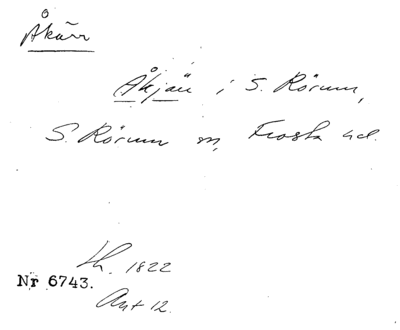 Åkärr
Åkjär i S. Rörum,
S. Rörum sn, Frosta hd.
Lh. 1822
Nr 6743.
Akt 12.